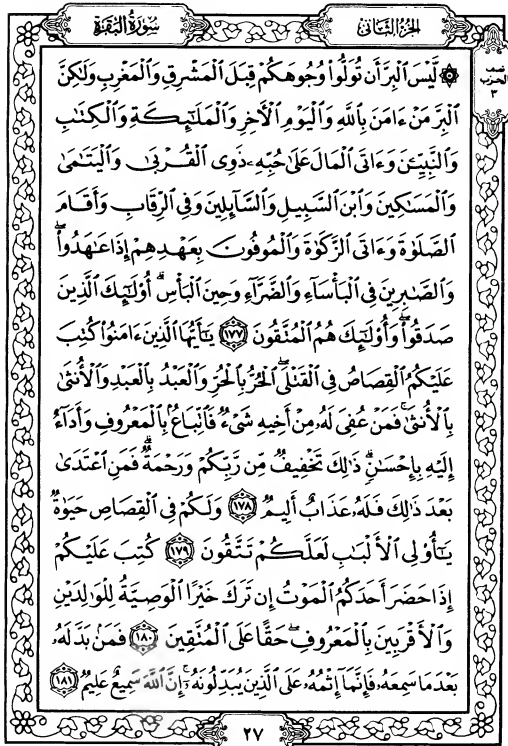 سُورَةُ البَقَرَةِ
الجزء الثاني
نصف
الحزب
٣
۞ لَّيْسَ ٱلْبِرَّ أَن تُوَلُّوا۟ وُجُوهَكُمْ قِبَلَ ٱلْمَشْرِقِ وَٱلْمَغْرِبِ وَلَٰكِنَّ
ٱلْبِرَّ مَنْ ءَامَنَ بِٱللَّهِ وَٱلْيَوْمِ ٱلْءَاخِرِ وَٱلْمَلَٰٓئِكَةِ وَٱلْكِتَٰبِ
وَٱلنَّبِيِّۦنَ وَءَاتَى ٱلْمَالَ عَلَىٰ حُبِّهِۦ ذَوِى ٱلْقُرْبَىٰ وَٱلْيَتَٰمَىٰ
وَٱلْمَسَٰكِينَ وَٱبْنَ ٱلسَّبِيلِ وَٱلسَّآئِلِينَ وَفِى ٱلرِّقَابِ وَأَقَامَ
ٱلصَّلَوٰةَ وَءَاتَى ٱلزَّكَوٰةَ وَٱلْمُوفُونَ بِعَهْدِهِمْ إِذَا عَٰهَدُوا۟ ۖ
وَٱلصَّٰبِرِينَ فِى ٱلْبَأْسَآءِ وَٱلضَّرَّآءِ وَحِينَ ٱلْبَأْسِ ۗ أُو۟لَٰٓئِكَ ٱلَّذِينَ
صَدَقُوا۟ ۖ وَأُو۟لَٰٓئِكَ هُمُ ٱلْمُتَّقُونَ ١٧٧ يَٰٓأَيُّهَا ٱلَّذِينَ ءَامَنُوا۟ كُتِبَ
عَلَيْكُمُ ٱلْقِصَاصُ فِى ٱلْقَتْلَى ۖ ٱلْحُرُّ بِٱلْحُرِّ وَٱلْعَبْدُ بِٱلْعَبْدِ وَٱلْأُنثَىٰ
بِٱلْأُنثَىٰ ۚ فَمَنْ عُفِىَ لَهُۥ مِنْ أَخِيهِ شَىْءٌ فَٱتِّبَاعٌۢ بِٱلْمَعْرُوفِ وَأَدَآءٌ
إِلَيْهِ بِإِحْسَٰنٍ ۗ ذَٰلِكَ تَخْفِيفٌ مِّن رَّبِّكُمْ وَرَحْمَةٌ ۗ فَمَنِ ٱعْتَدَىٰ
بَعْدَ ذَٰلِكَ فَلَهُۥ عَذَابٌ أَلِيمٌ ١٧٨ وَلَكُمْ فِى ٱلْقِصَاصِ حَيَوٰةٌ
يَٰٓأُو۟لِى ٱلْأَلْبَٰبِ لَعَلَّكُمْ تَتَّقُونَ ١٧٩ كُتِبَ عَلَيْكُمْ
إِذَا حَضَرَ أَحَدَكُمُ ٱلْمَوْتُ إِن تَرَكَ خَيْرًا ٱلْوَصِيَّةُ لِلْوَٰلِدَيْنِ
وَٱلْأَقْرَبِينَ بِٱلْمَعْرُوفِ ۖ حَقًّا عَلَى ٱلْمُتَّقِينَ ١٨٠ فَمَنۢ بَدَّلَهُۥ
بَعْدَمَا سَمِعَهُۥ فَإِنَّمَآ إِثْمُهُۥ عَلَى ٱلَّذِينَ يُبَدِّلُونَهُۥٓ ۚ إِنَّ ٱللَّهَ سَمِيعٌ عَلِيمٌ ١٨١
٢٧